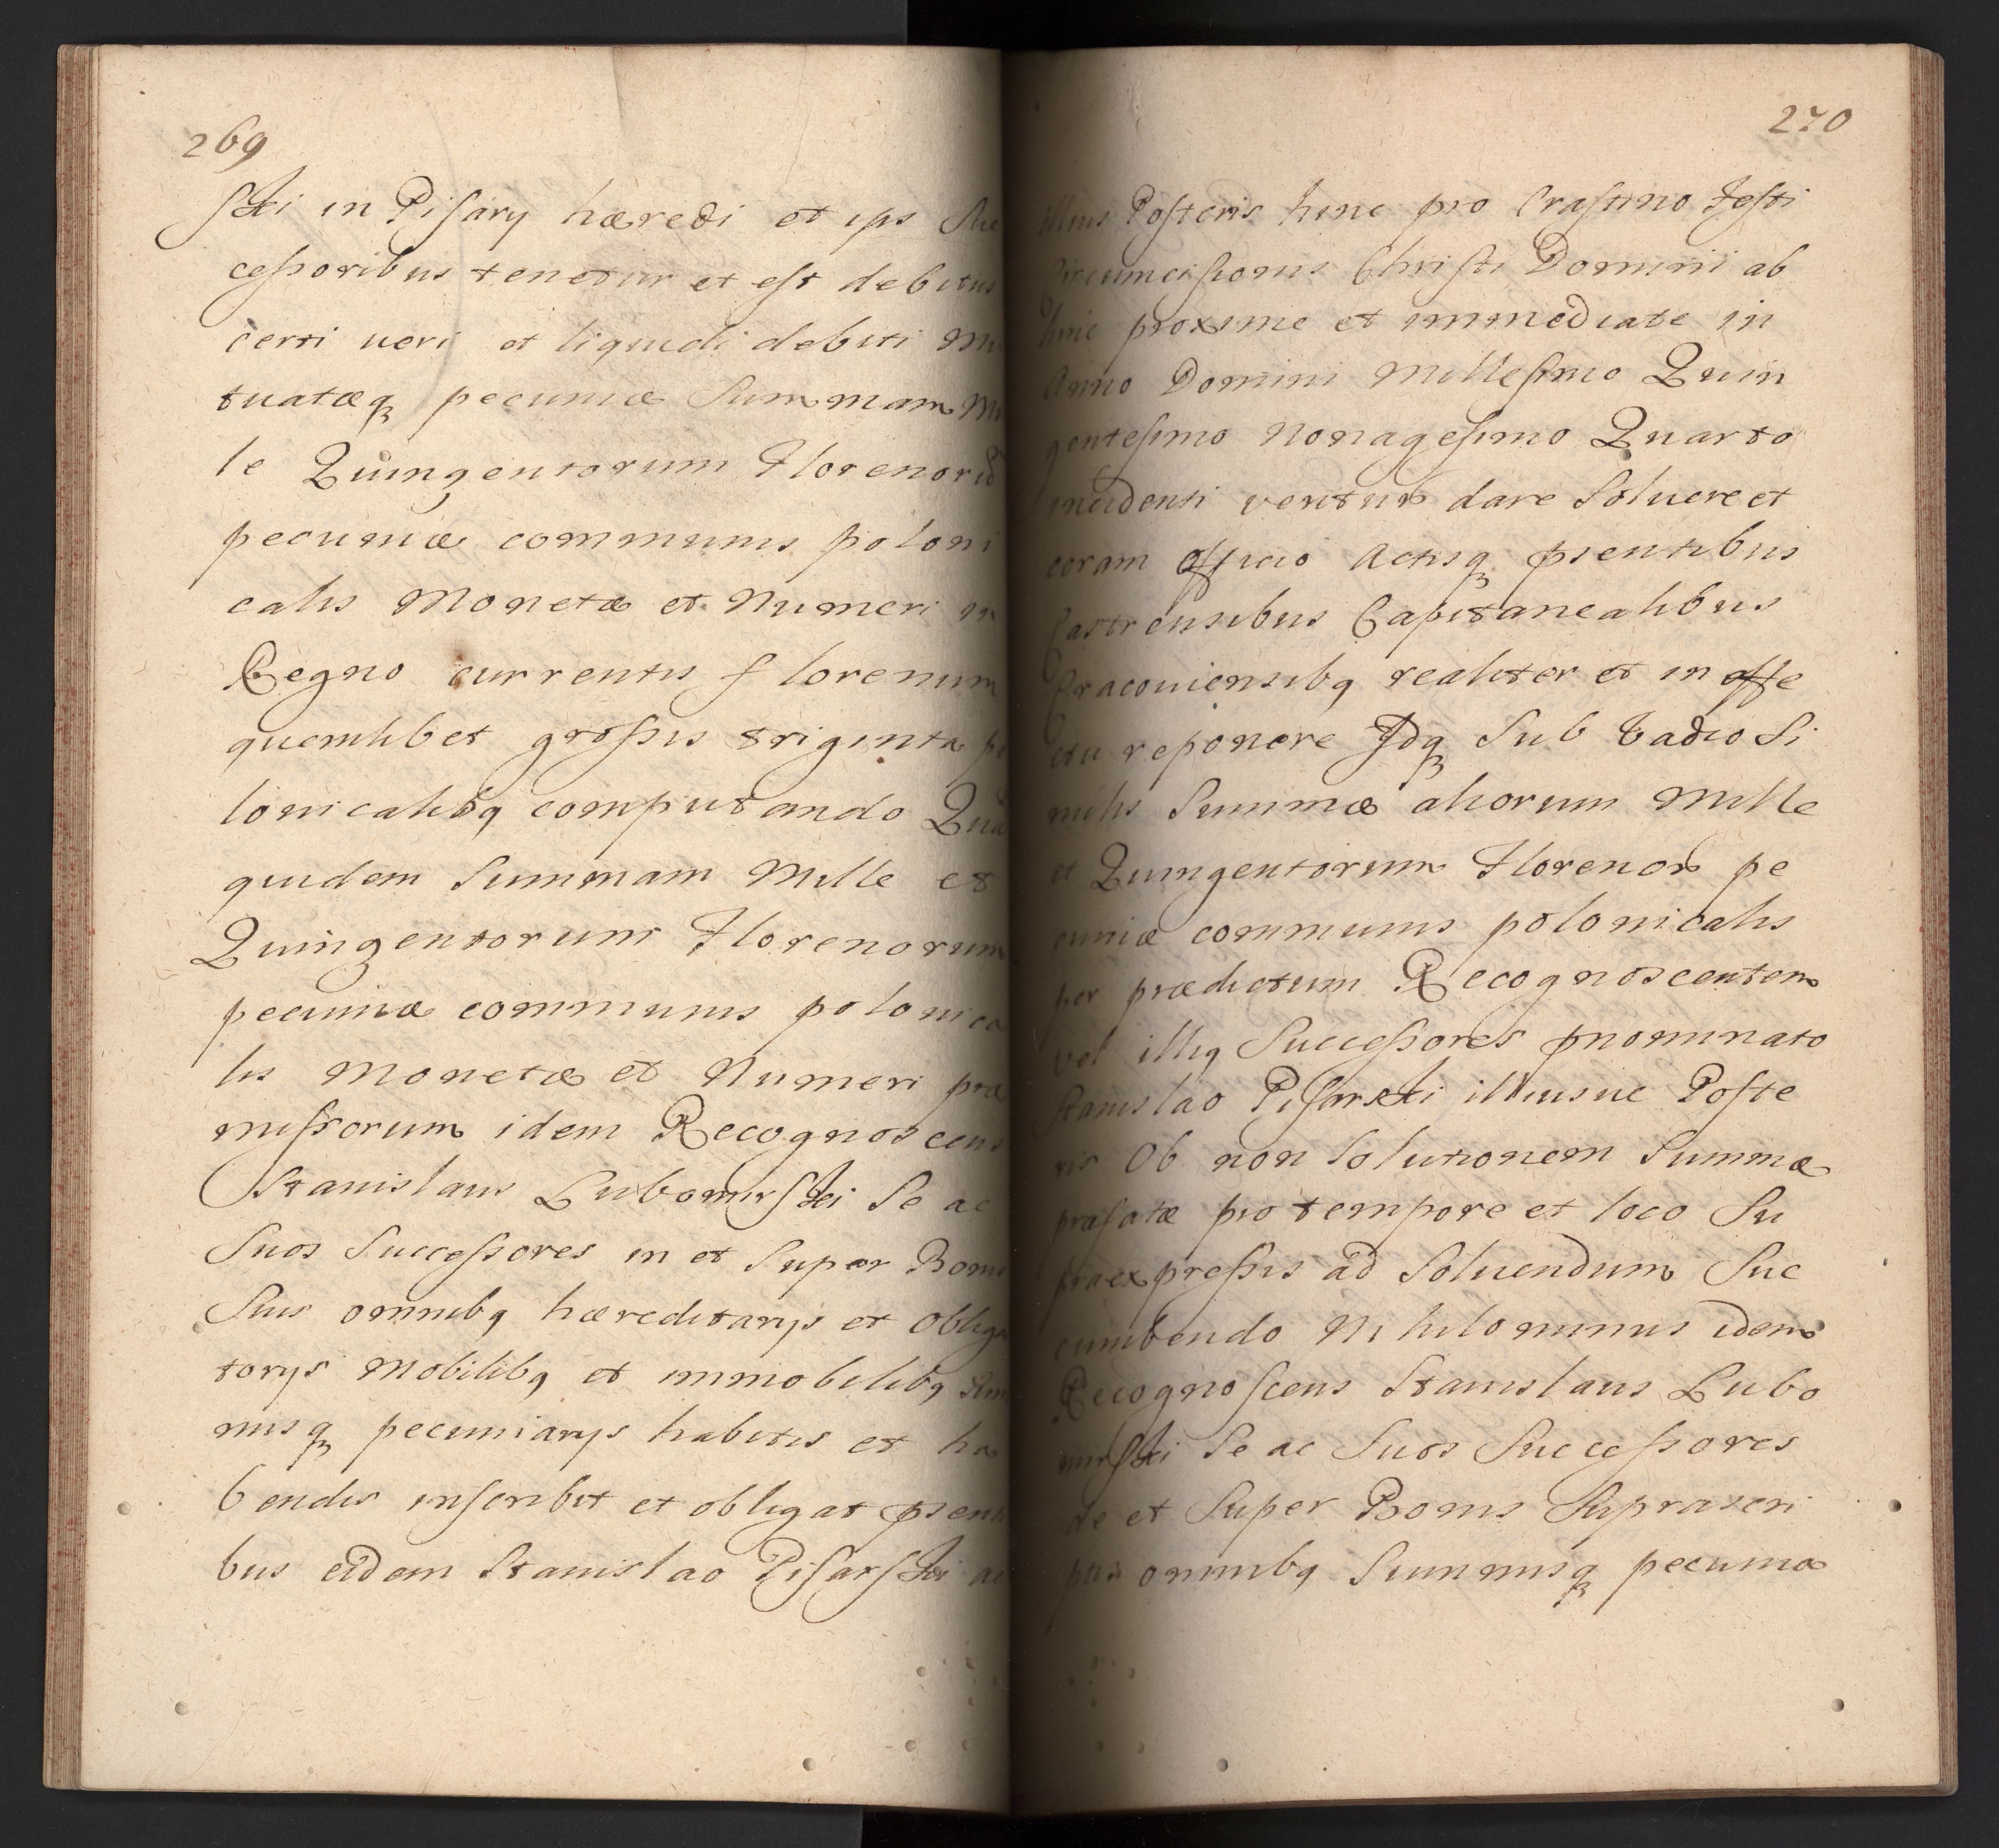 269
ſki in Piſary hæredi et ips Suc
ceſsoribus tenetur et eſt debitus
certi ueri et liquidi debiti Mu
tuatæq pecuniæ Summam Mil
le Quingentorum Florenorũ
pecuniæ communis poloni
calis Monetæ et Numeri in
Regno currentis florenum
quemlibet groſsis triginta po
lonicalibq computando Quã
quidem Summam Mille et
Quingentorum Florenorum
pecuniæ communis polonica
lis Monetæ et Numeri præ
miſsorum idem Recognoscens
Stanislaus Lubomirſki Se ac
Suos Succeſsores in et Super Bonis
Suis omnibq hæreditarys et obliga
torys Mobilibq et immobilibq Sum
misq pecuniarys habitis et ha
bendis inſcribit et obligat pſenti
bus eidem Stanislao Piſarſki ac
270
illius Poſteris hinc pro Craſtino Feſti
Circumciſionis Chriſti Domini ab
hinc proxime et immediate in
Anno Domini Milleſimo Quin
genteſimo Nonageſimo Quarto
incidenti venturo dare Soluere et
coram officio Actisq pſentibus
Castrensibus Capitanealibus
Cracouiensibq realiter et in effe
ctu reponere Idq Sub Vadio Si
milis Summæ aliorum Mille
et Quingentorum Florenor pe
cuniæ communis polonicalis
per prædictum Recognoscentem
vel illiq Succeſsores pnominato
Stanislao Piſarski illiusue Poſte
ris Ob non Solutionem Summæ
præfatæ pro tempore et loco Su
praexpreſsis ad Soluendum Suc
cumbendo Nihilominus idem
Recognoſcens Stanislaus Lubo
mirſki Se ac Suos Succeſsores
de et Super Bonis Suprascri
ptis omnibq Summisq pecunia